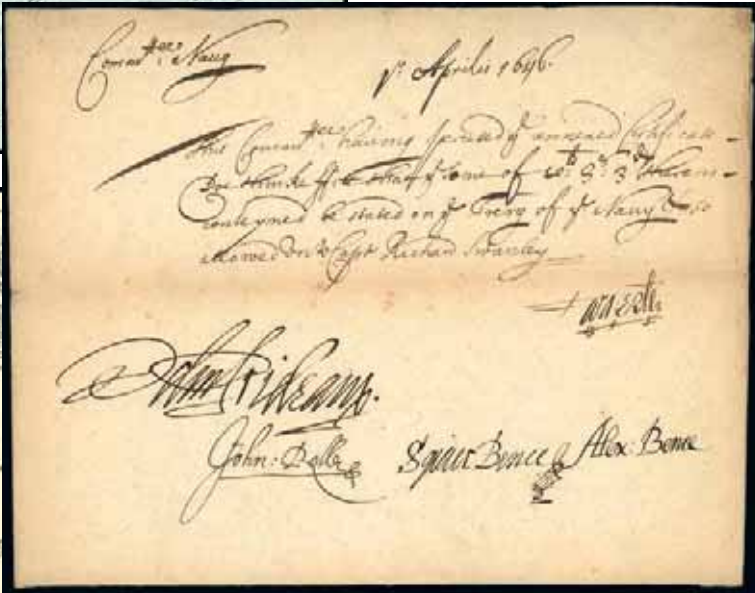 Com^ttee Navy
1° Aprilis 1646.
This Com^ttee having perused y^e annexed Certificate
Doe thinke fitt that y^e some of 3^d therein
conteyned be stated on y^e Trer of y^e Navy & so
allowed on to Capt Richard Swanley
Warwick
John: Rolle
Squier Bence Alex: Bence